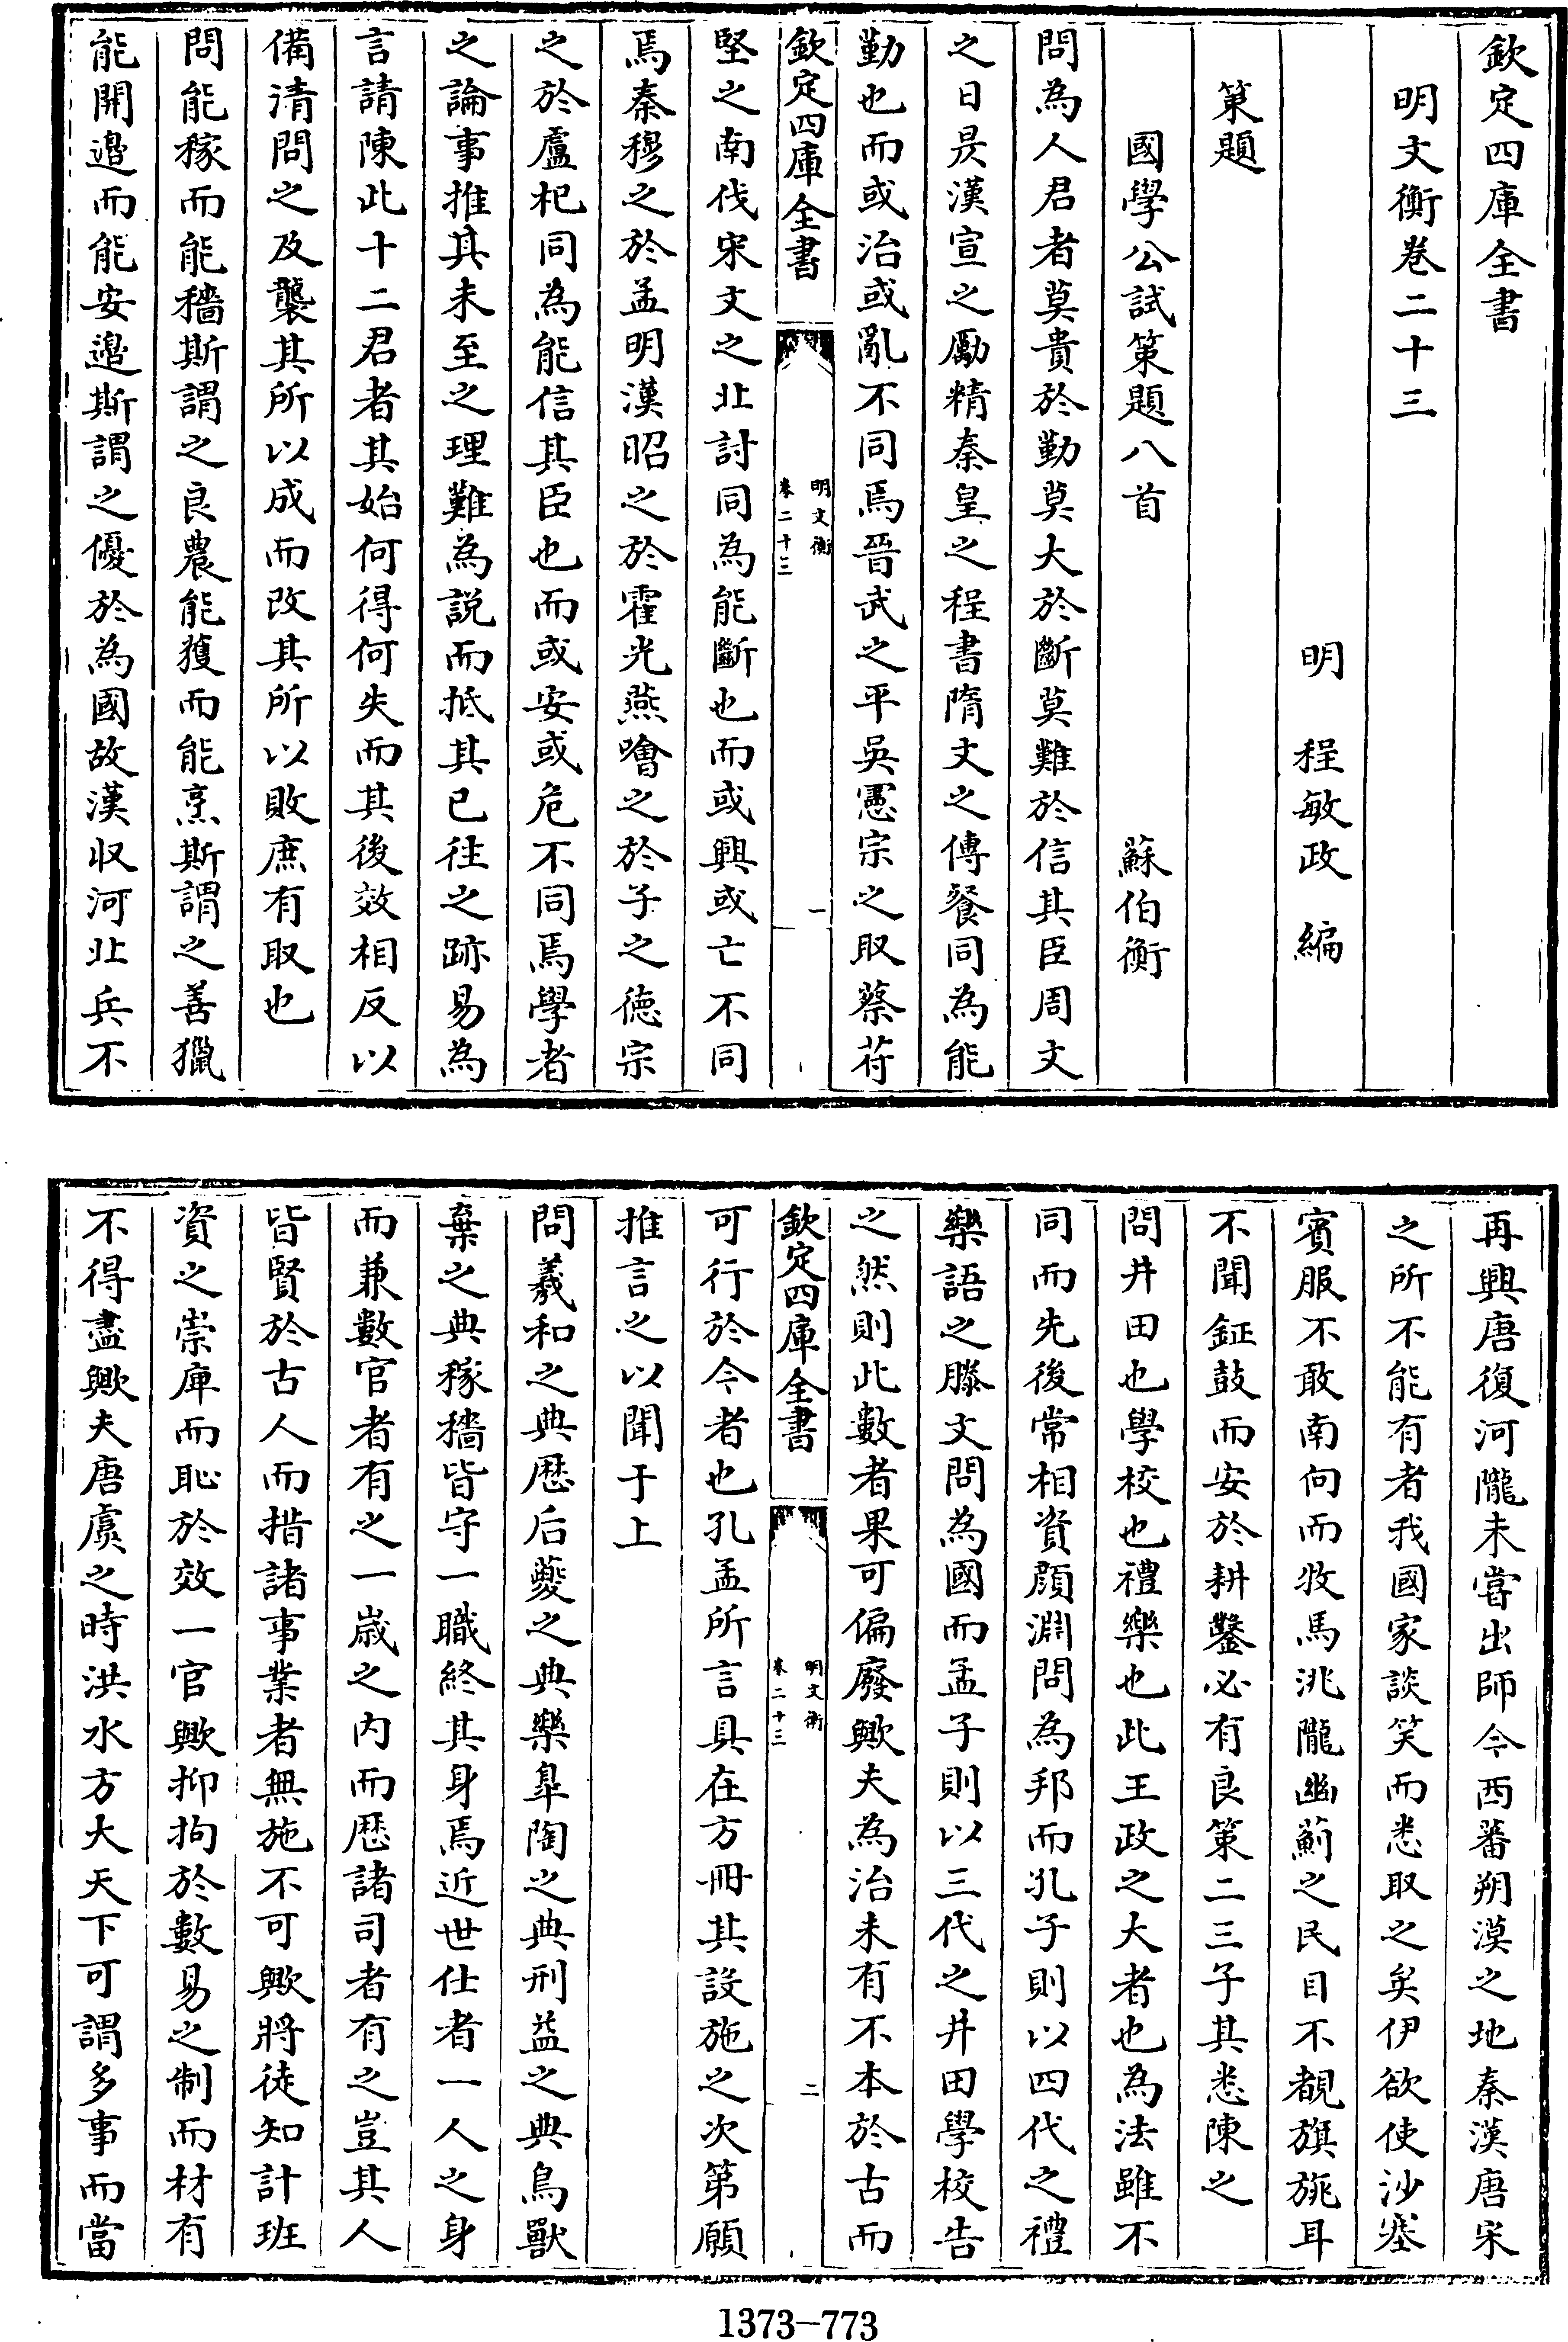 欽定四庫全書
明文衡卷二十三
明　程敏政　編
策題
國學公試策題八首　蘇伯衡
問為人君者莫貴於勤莫大於斷莫難於信其臣周文
之日昃漢宣之勵精秦皇之程書隋文之傳餐同為能
勤也而或治或亂不同焉晉武之平吳憲宗之取蔡苻
欽定四庫全書
明文衡
卷二十三
一
堅之南伐宋文之北討同為能斷也而或興或亡不同
焉秦穆之於孟明漢昭之於霍光燕噲之於子之德宗
之於盧杞同為能信其臣也而或安或危不同焉學者
之論事推其未至之理難為說而抵其已往之跡易為
言請陳此十二君者其始何得何失而其後效相反以
備清問之及襲其所以成而改其所以敗庶有取也
問能稼而能穡斯謂之良農能獲而能烹斯謂之善獵
能開邊而能安邊斯謂之優於為國故漢収河北兵不
再興唐復河隴未嘗出師今西蕃朔漠之地秦漢唐宋
之所不能有者我國家談笑而悉取之矣伊欲使沙塞
賓服不敢南向而牧馬洮隴幽薊之民目不覩旗旐耳
不聞鉦鼓而安於耕鑿必有良策二三子其悉陳之
問井田也學校也禮樂也此王政之大者也為法雖不
同而先後常相資顔淵問為邦而孔子則以四代之禮
樂語之滕文問為國而孟子則以三代之井田學校告
之然則此數者果可偏廢歟夫為治未有不本於古而
欽定四庫全書
明文衡
卷二十三
二
可行於今者也孔孟所言具在方冊其設施之次第願
推言之以聞于上
問羲和之典厯后夔之典樂臯陶之典刑益之典鳥獸
棄之典稼穡皆守一職終其身焉近世仕者一人之身
而兼數官者有之一歳之内而厯諸司者有之豈其人
皆賢於古人而措諸事業者無施不可歟將徒知計班
資之崇庳而恥於效一官歟抑拘於數易之制而材有
不得盡歟夫唐虞之時洪水方大天下可謂多事而當
1373—773